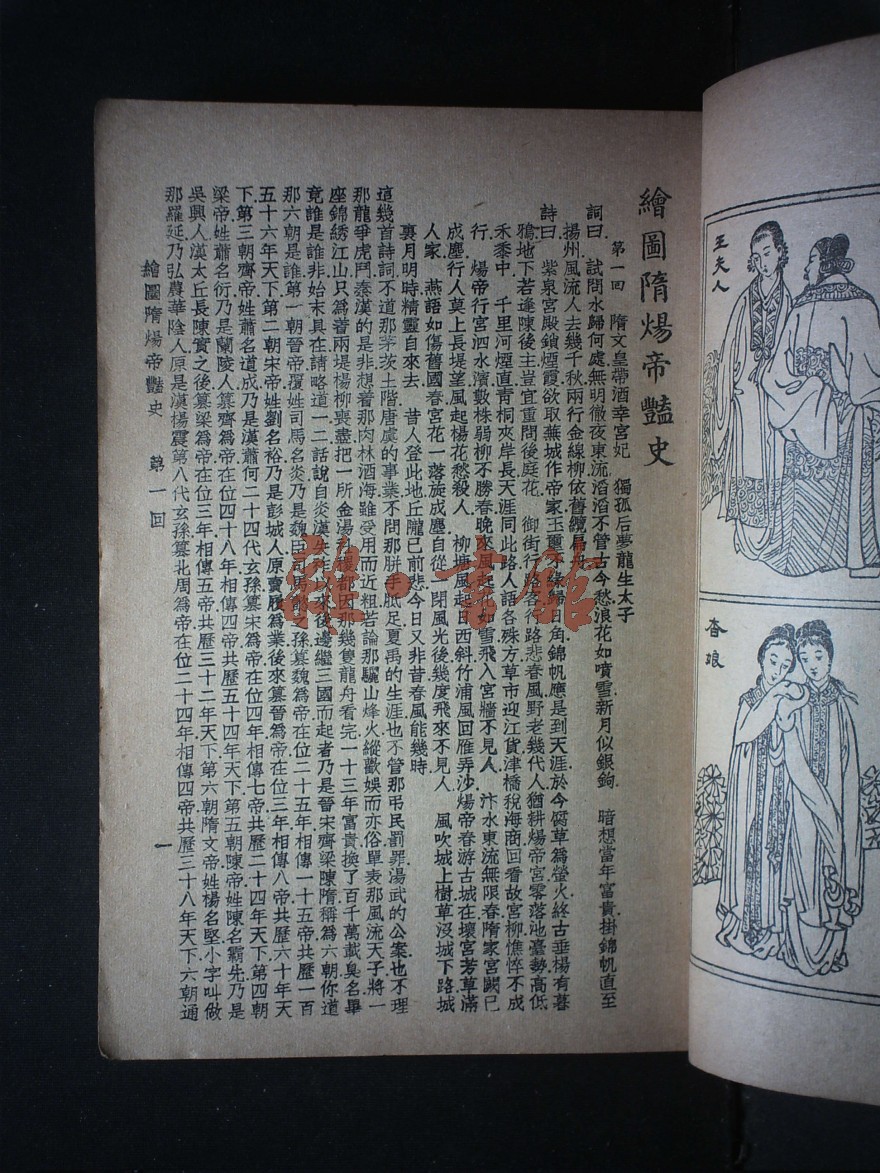 繪圖隋煬帝豔史
第一回　隋文皇帶酒幸宮妃　獨孤后夢龍生太子
詞曰　試問水歸何處無明徹夜東流滔滔不管古今愁浪花如噴雪新月似銀鉤　暗想當年富貴掛錦帆直至
揚州風流人去幾千秋兩行金線柳依舊纜扁舟
詩曰　紫泉宮殿鎖煙霞欲取蕪城作帝家玉璽不緣歸日角錦帆應是到天涯於今腐草為螢火終古垂楊有暮
鴉地下若逢陳後主豈宜重問後庭花　御街行路各行路悲春風野老幾代人猶耕煬帝宮零落池臺勢高低
禾黍中　千里河煙直青桐夾岸長天涯同此路人語各殊方草市迎江貨津橋稅海商回看故宮柳憔悴不成
行　煬帝行宮泗水濱數株弱柳不勝春晚來風起花如雪飛入宮牆不見人　汴水東流無限春隋家宮闕已
成塵行人莫上長堤望風起楊花愁殺人　柳塘風起日西斜竹浦風回雁弄沙煬帝春游古城在壞宮芳草滿
人家　燕語如傷舊國春宮花一落旋成塵自從一閉風光後幾度飛來不見人　風吹城上樹草沒城下路城
裏月明時精靈自來去　昔人登此地丘隴已前悲今日又非昔春風能幾時
這幾首詩詞不道那茅茨土階唐虞的事業不問那胼手胝足夏禹的生涯也不管那弔民罰罪湯武的公案也不理
那龍爭虎鬥秦漢的是非想着那肉林酒海雖受用而近粗若論那驪山烽火縱歡娛而亦俗單表那風流天子將一
座錦綉江山只為着兩堤楊柳喪盡把一所金湯社稷都因那幾隻龍舟看完一十三年富貴換了百千萬載臭名畢
竟誰是誰非始末具在請略道一二話說自炎漢失祚以來後邊繼三國而起者乃是晉宋齊梁陳隋稱為六朝你道
那六朝是誰第一朝晉帝覆姓司馬名炎乃是魏臣司馬懿之孫篡魏為帝在位二十五年相傳一十五帝共歷一百
五十六年天下第二朝宋帝姓劉名裕乃是彭城人原賣履為業後來篡晉為帝在位三年相傳八帝共歷六十年天
下第三朝齊帝姓蕭名道成乃是漢蕭何二十四代玄孫篡宋為帝在位四年相傳七帝共歷二十四年天下第四朝
梁帝姓蕭名衍乃是蘭陵人篡齊為帝在位四十八年相傳四帝共歷五十四年天下第五朝陳帝姓陳名霸先乃是
吳興人漢太丘長陳實之後篡梁為帝在位三年相傳五帝共歷三十二年天下第六朝隋文帝姓楊名堅小字叫做
那羅延乃弘農華陰人原是漢楊震第八代玄孫篡北周為帝在位二十四年相傳四帝共歷三十八年天下六朝通
繪圖隋煬帝豔史　第一回　一
王夫人
杳娘
雜·書館